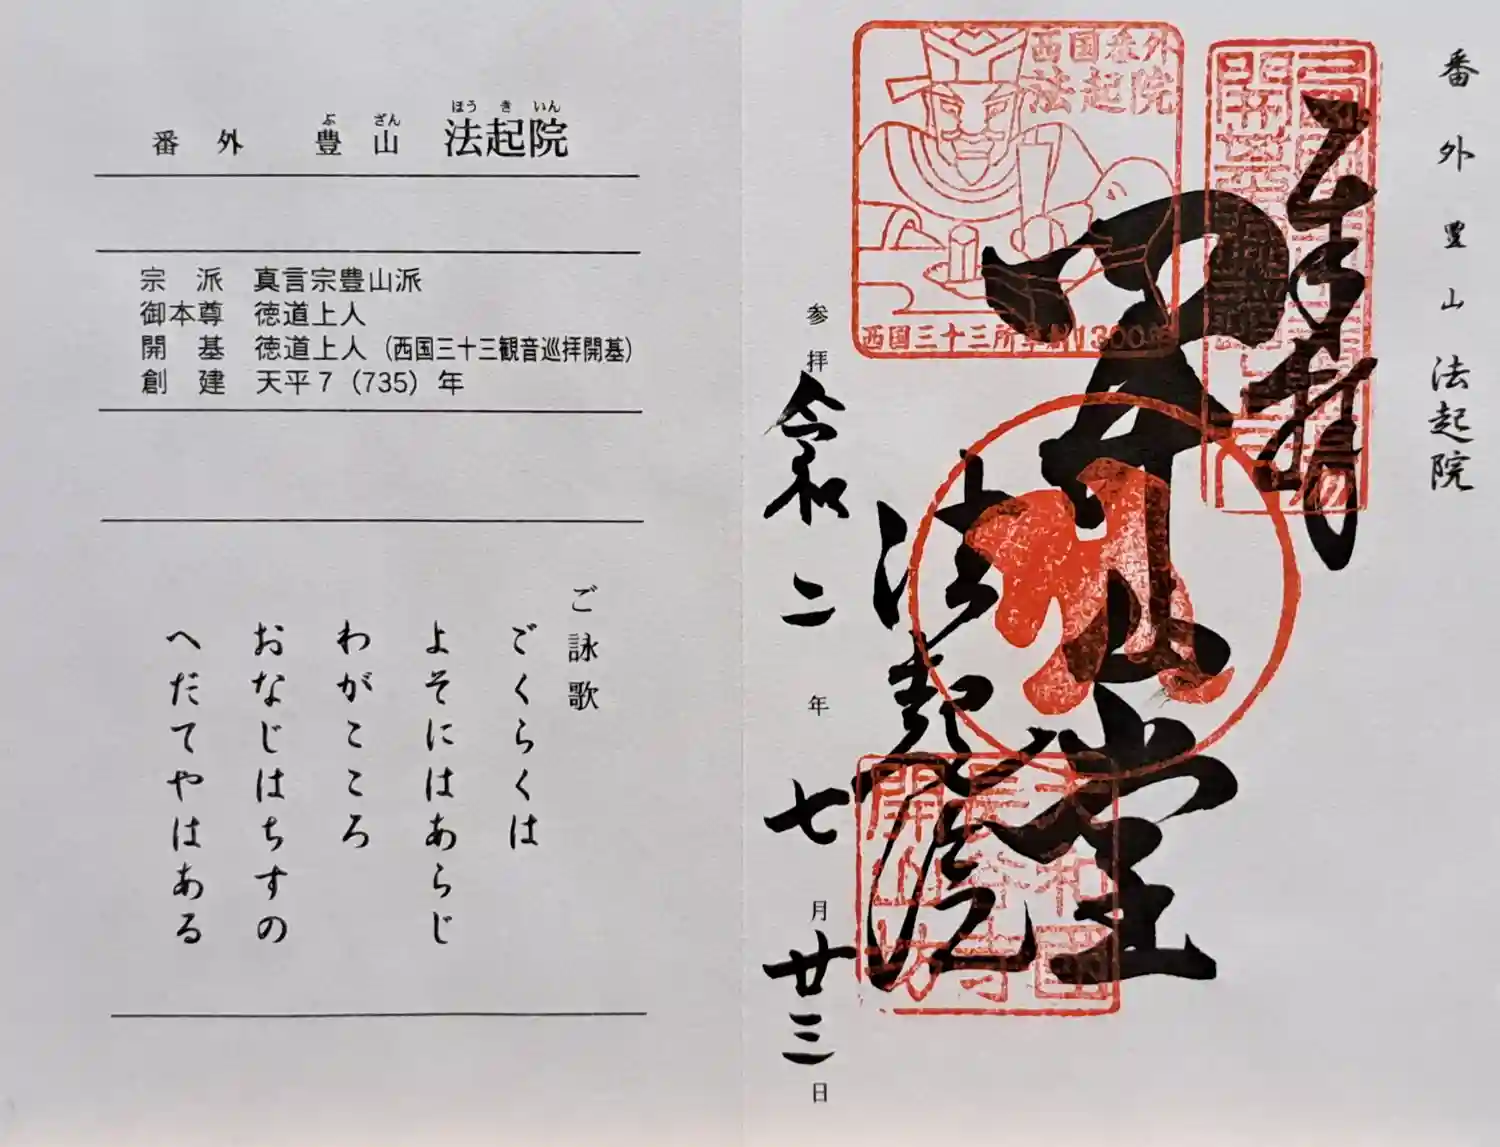 番外 豊山 法起院
ぶ ざん ほう き いん
宗派 真言宗豊山派
御本尊 徳道上人
開基 徳道上人（西国三十三観音巡拝開基）
創建 天平7（735）年
ご詠歌
ごくらくは
よそにはあらじ
わがこころ
おなじはちすの
へだてやはある
番外 豊山 法起院
奉拝
開山堂
法起院
参拝 令和二年七月廿三日
西国番外
法起院
西国三十三所草創1300年
大和国
長谷寺
開山坊